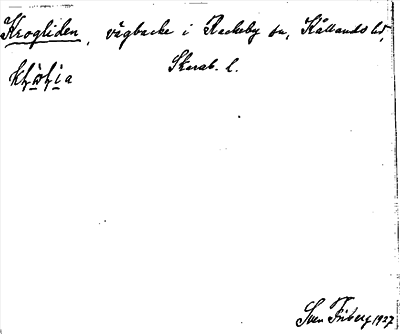 Krogliden, vägbacke i Rackeby sn, Kållands hd,
Skarab. l.
Sven Friberg 1927